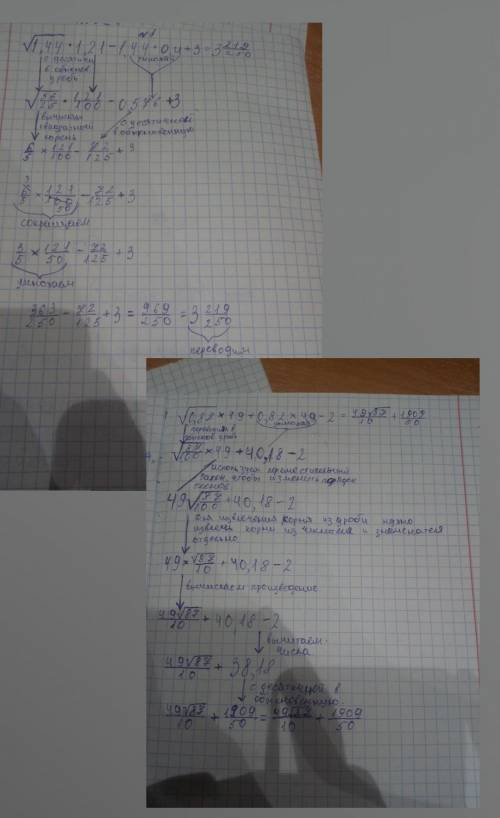 №1
√1,44 * 1,21 - 1,44 * 0,4 + 3 = 3 219/250
с десятич в обыкнов. дробь
умножаем
√36/25 * 121/100 - 0,576 + 3
вычисляем квадратный корень
с десятичной в обыкновенную
6/5 × 121/100 - 72/125 + 3
3
6/5 × 121/100 - 72/125 + 3
50
сокращаем
3/5 × 121/50 - 72/125 + 3
умножаем
363/250 - 72/125 + 3 = 969/250 = 3 219/250
переводим
√0,87 × 49 + 0,82 × 49 - 2 = 49√87/10 + 1909/50
переводим в обыкнов дробь
умножаем
√87/100 × 49 + 40,18 - 2
используем переместительный закон, чтобы изменить порядок
49√87/100 + 40,18 - 2
Для извлечения корня из дроби нужно
извлечь корни из числителя и знаменателя
отдельно.
49 × √87/10 + 40,18 - 2
вычисляем произведение
49√87/10 + 40,18 - 2
вычитаем числа
49√87/10 + 38,18
с десятичной в обыкновенную
49√87/10 + 1909/50 = 49√87/10 + 1909/50